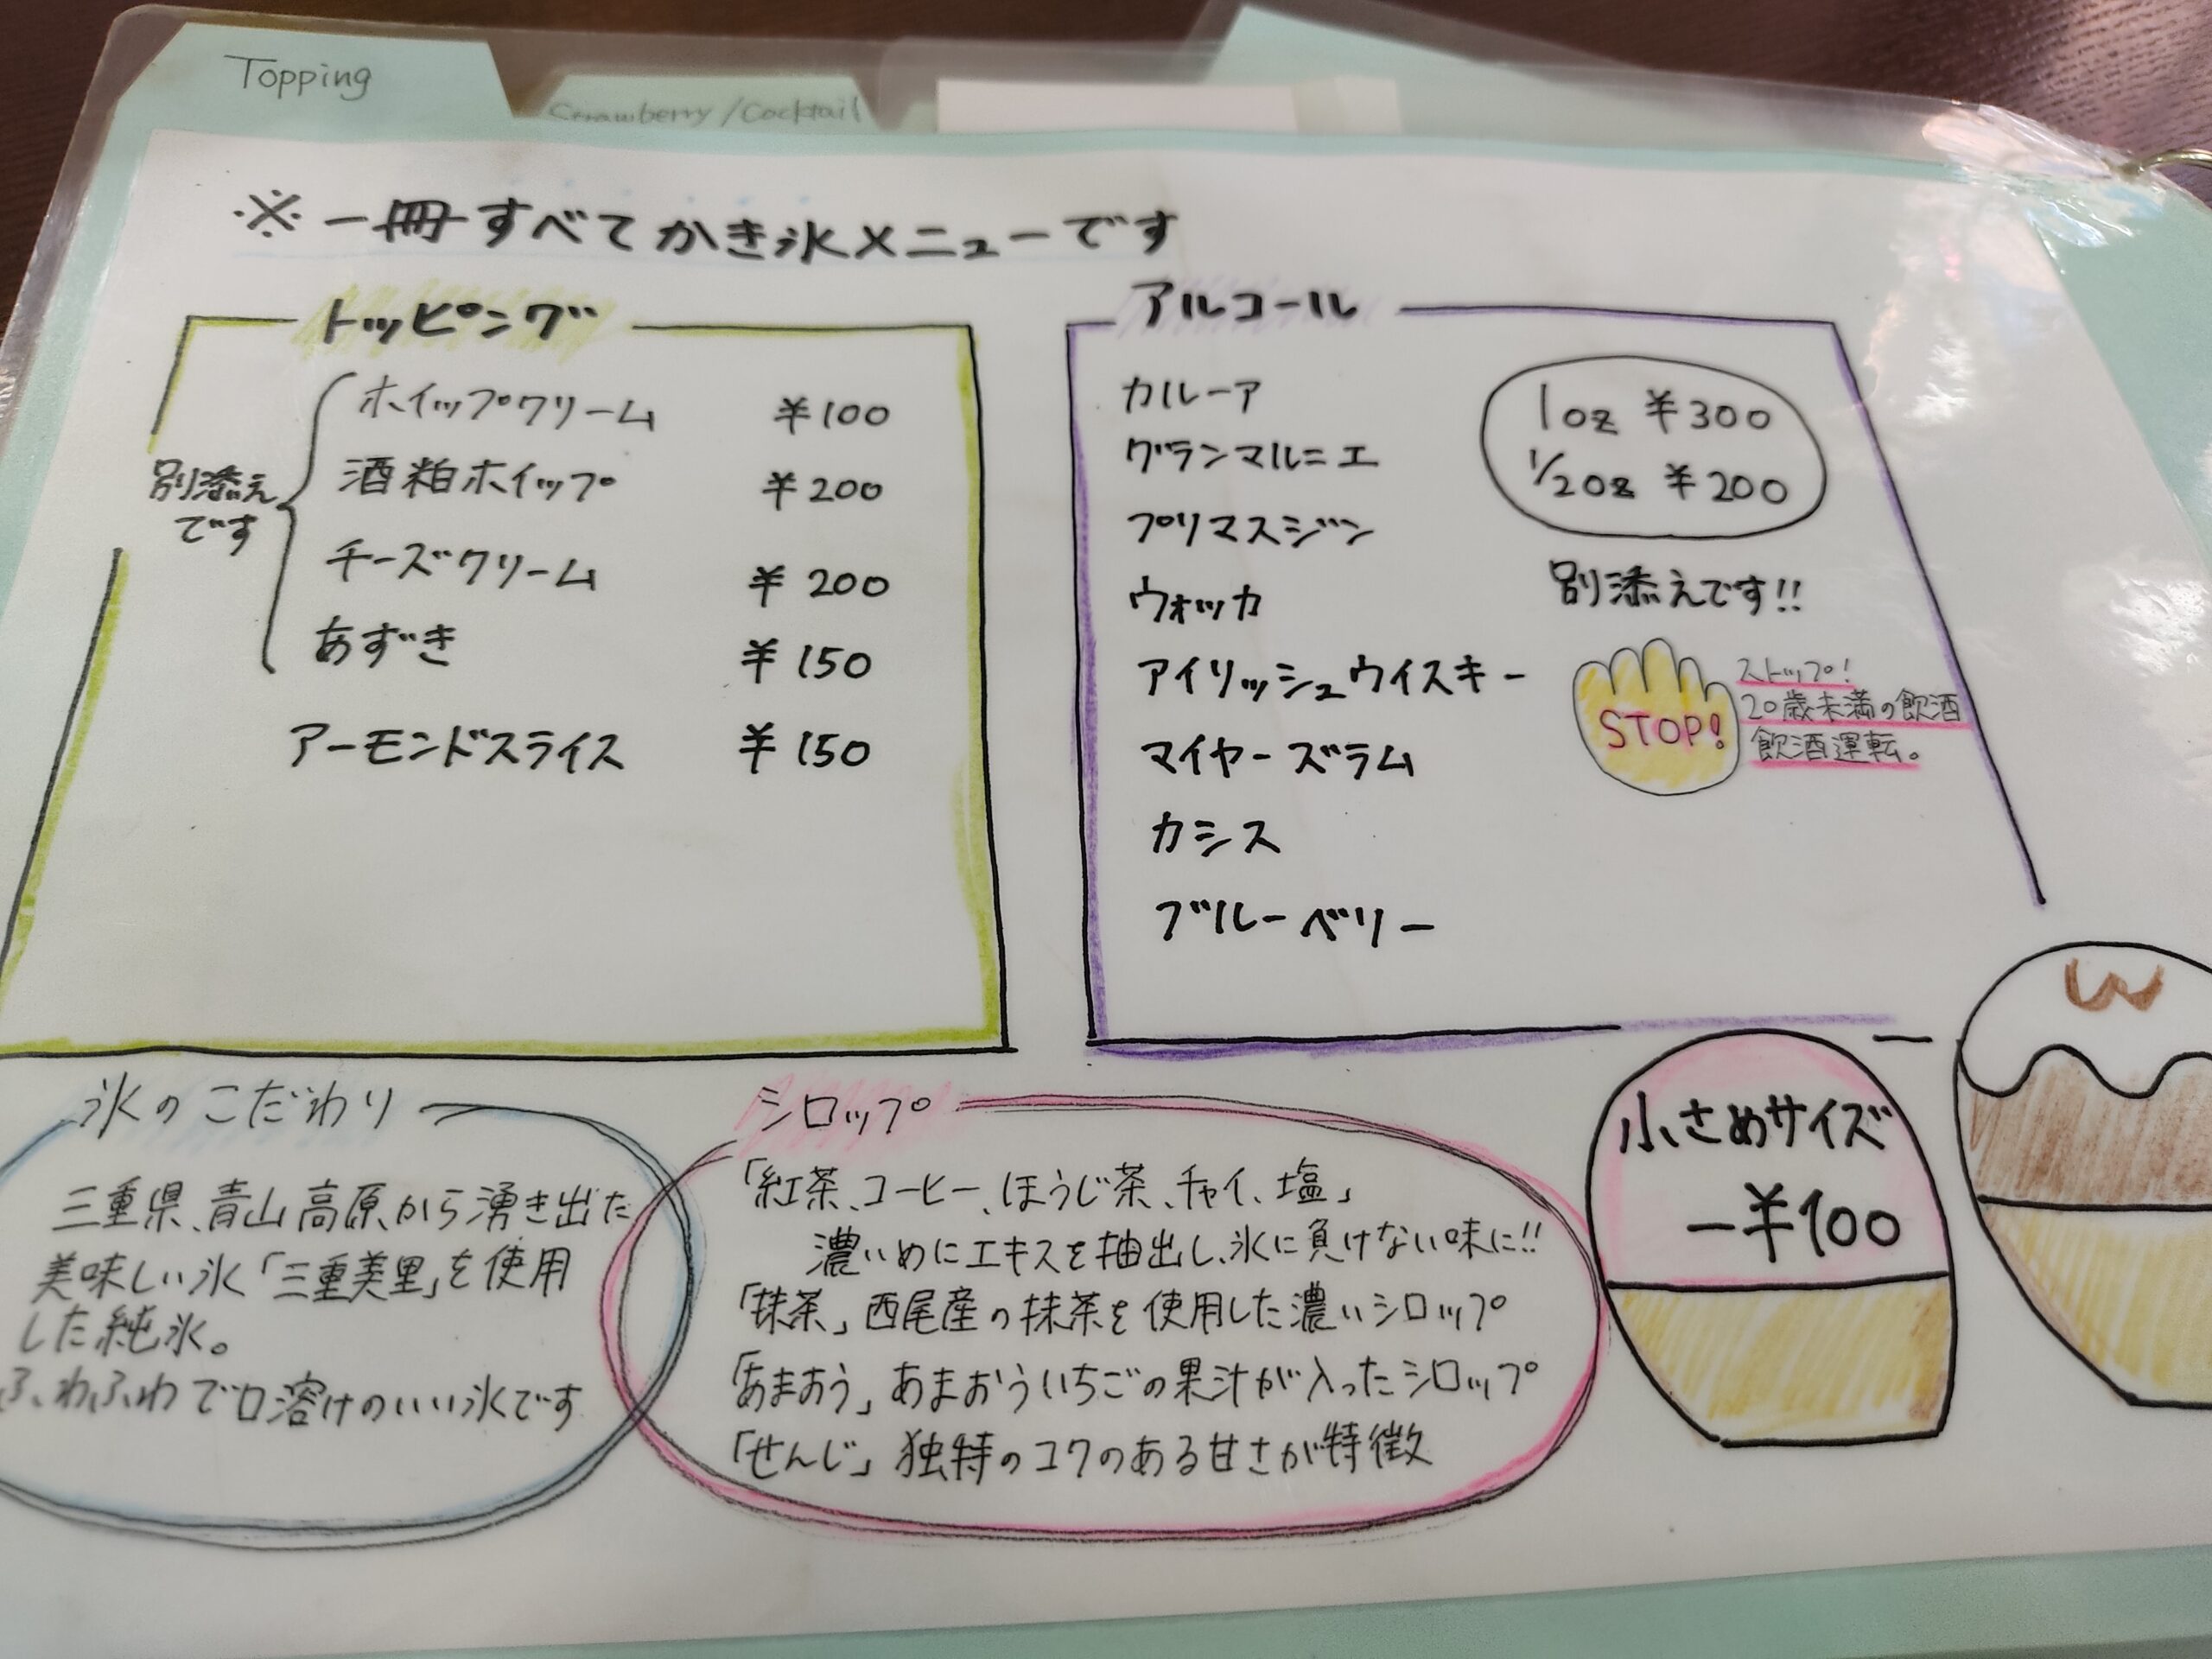 Topping
Strawberry/Cocktail
※一冊すべてかき氷メニューです
トッピング
別添えです
ホイップクリーム ¥100
酒粕ホイップ ¥200
チーズクリーム ¥200
あずき ¥150
アーモンドスライス ¥150
アルコール
カルーア
グランマルニエ
プリマスジン
ウォッカ
アイリッシュウイスキー
マイヤーズラム
カシス
ブルーベリー
1oz ¥300
1/2oz ¥200
別添えです!!
STOP!
ストップ!
20歳未満の飲酒
飲酒運転。
氷のこだわり
三重県、青山高原から湧き出た
美味しい氷「三重美里」を使用
した純氷。
ふわふわで口溶けのいい氷です
シロップ
「紅茶、コーヒー、ほうじ茶、チャイ、塩」
濃いめにエキスを抽出し、氷に負けない味に!!
「抹茶」西尾産の抹茶を使用した濃いシロップ
「あまおう」あまおういちごの果汁が入ったシロップ
「せんじ」独特のコクのある甘さが特徴
小さめサイズ
-¥100